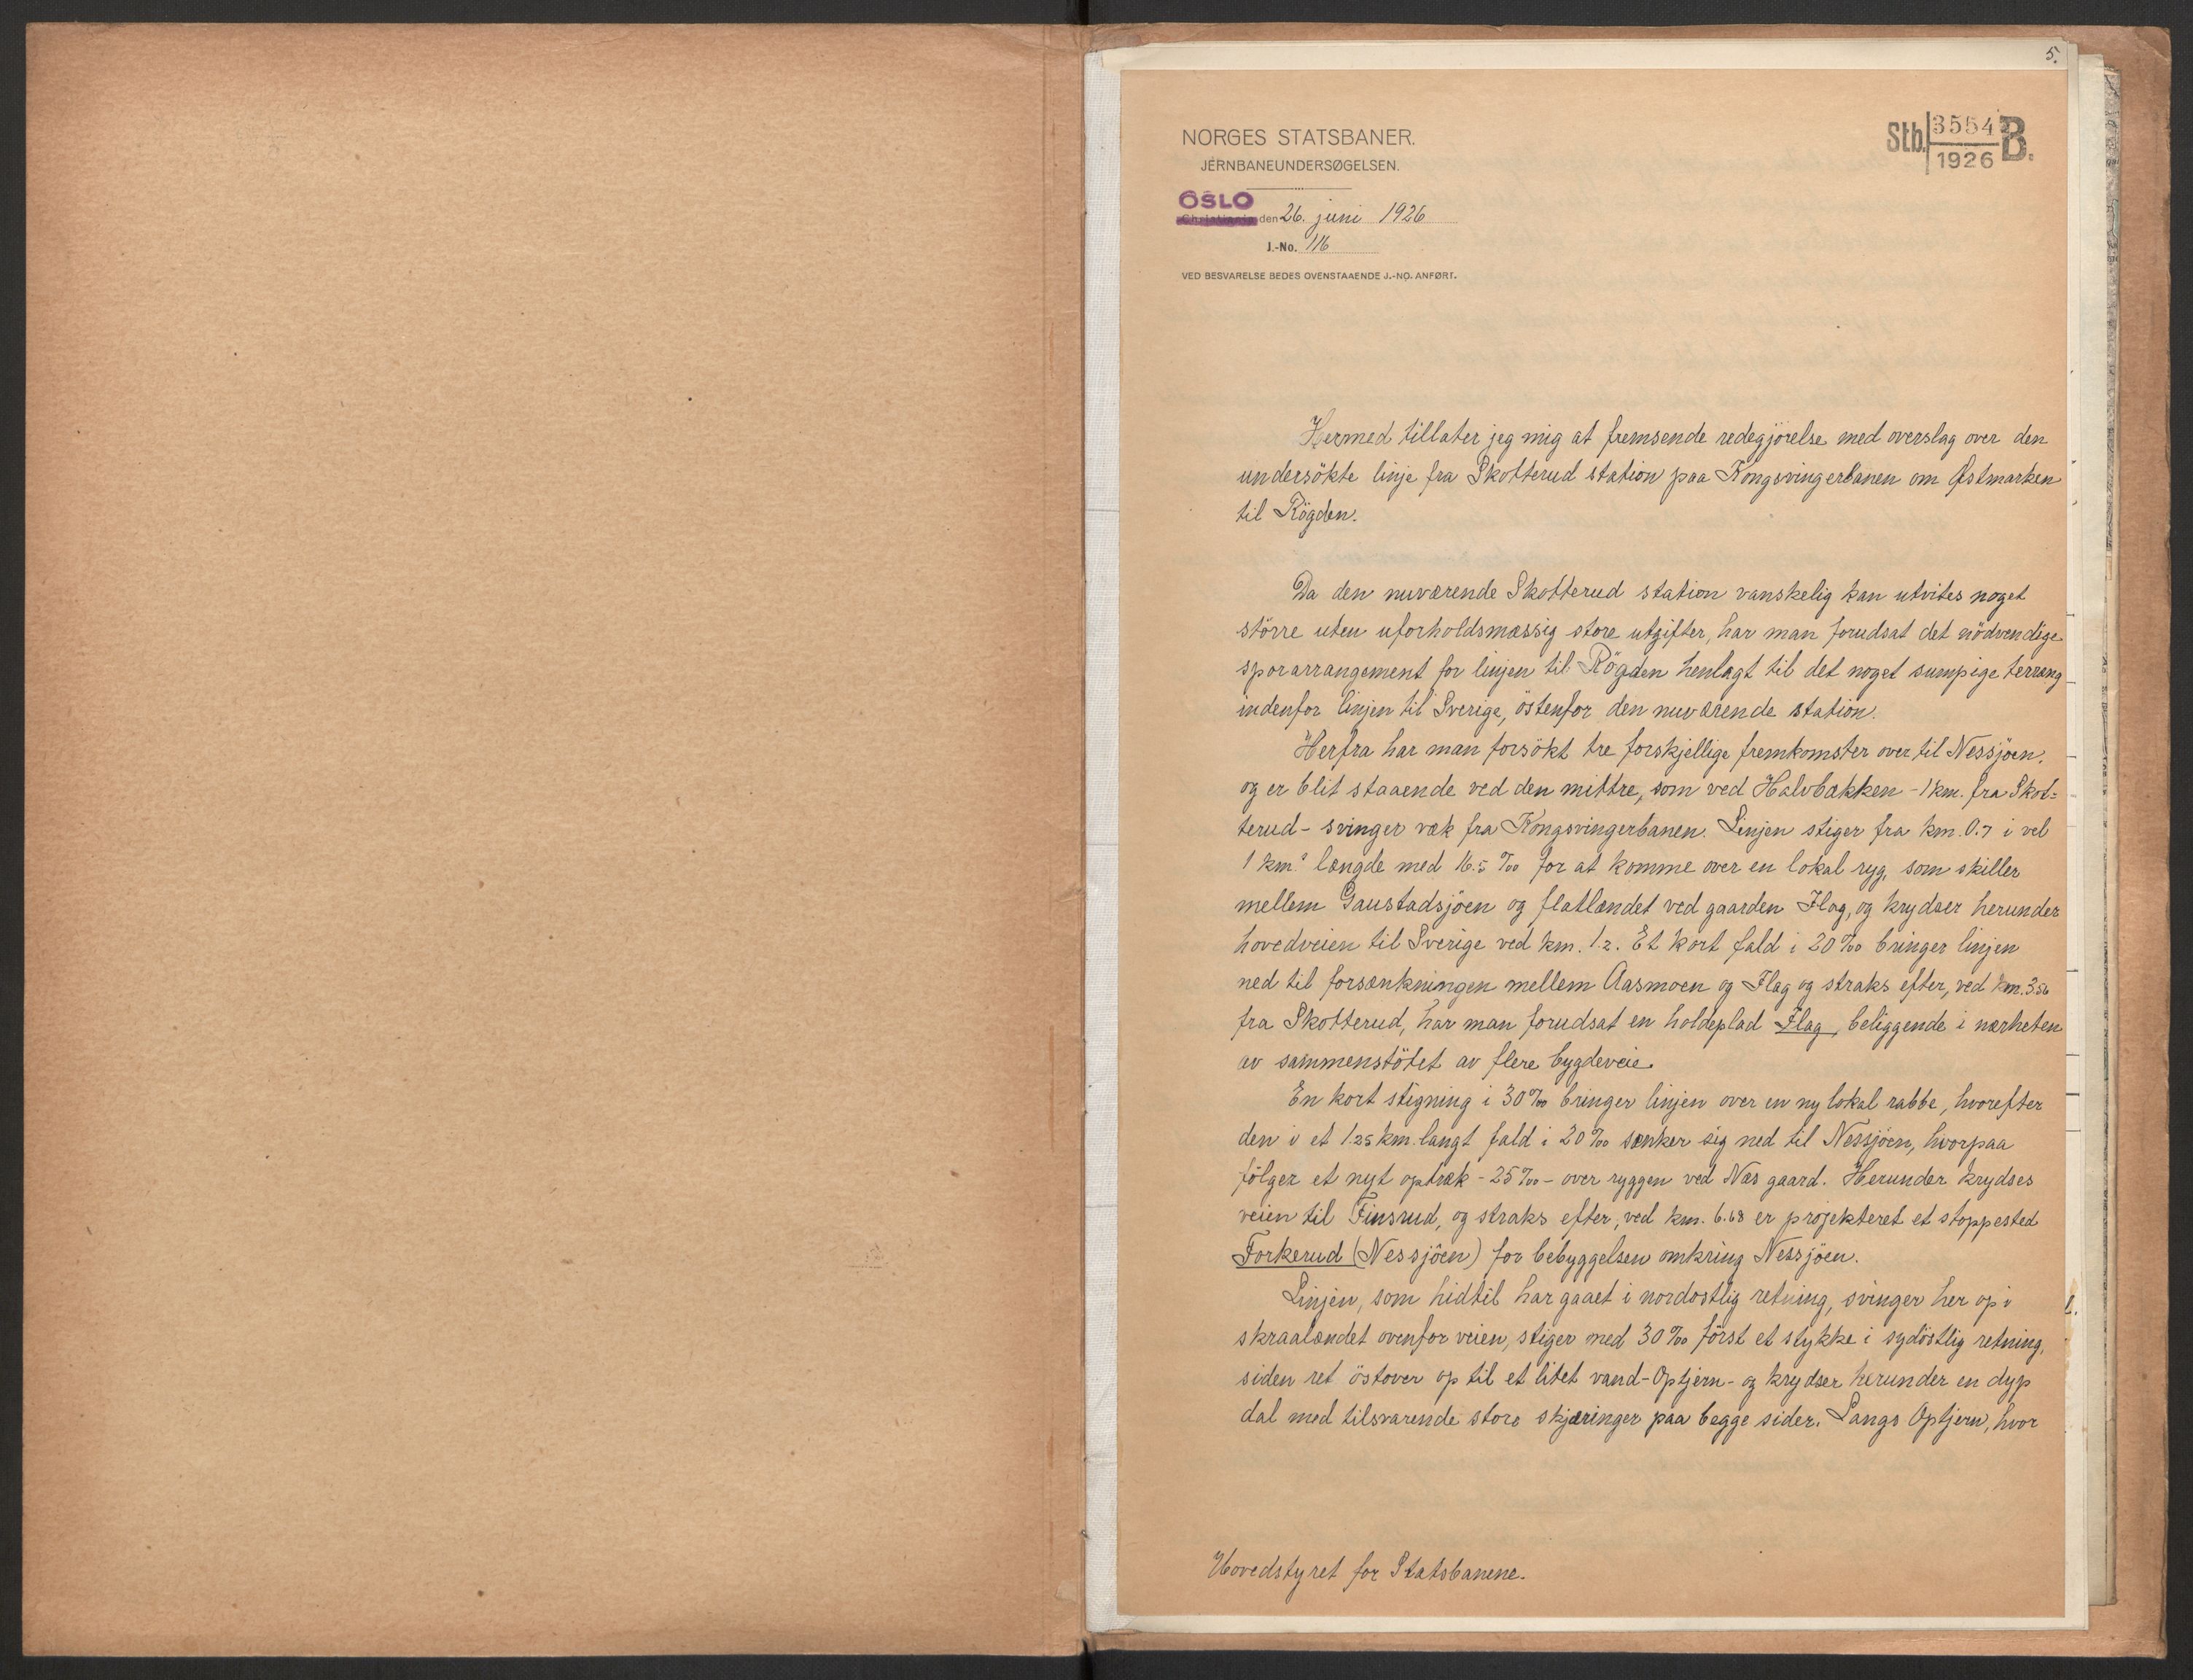 5.
NORGES STATSBANER.
JERNBANEUNDERSØGELSEN.
Stb. 3554/1926 B.
OSLO
Christiania den 26. juni 1926
J.-No. 116
VED BESVARELSE BEDES OVENSTAAENDE J.-NO. ANFØRT.
Hermed tillater jeg mig at fremsende redegjörelse med overslag over den
undersökte linje fra Skotterud station paa Kongsvingerbanen om Østmarken
til Rögden.
Da den nuværende Skotterud station vanskelig kan utvites noget
större uten uforholdsmæssig store utgifter, har man forudsat det nödvendige
sporarrangement for linjen til Rögden henlagt til det noget sumpige terræng
indenfor linjen til Sverige, östenfor den nuværende station.
Herfra har man forsökt tre forskjellige fremkomster over til Nessjöen,
og er blit staaende ved den mittre, som ved Halvbakken - 1 km. fra Skot=
terud - svinger væk fra Kongsvingerbanen. Linjen stiger fra km. 0.7 i vel
1 km.s længde med 16.5 ‰ for at komme over en lokal ryg, som skiller
mellem Gaustadsjöen og flatlandet ved gaarden Flag, og krydser herunder
hovedveien til Sverige ved km. 1.2. Et kort fald i 20 ‰ bringer linjen
ned til forsænkningen mellem Aasmoen og Flag og straks efter, ved km. 3.56
fra Skotterud, har man forudsat en holdeplad Flag, beliggende i nærheten
av sammenstötet av flere bygdeveie.
En kort stigning i 30 ‰ bringer linjen over en ny lokal rabbe, hvorefter
den i et 1.25 km. langt fald i 20 ‰ sænker sig ned til Nessjöen, hvorpaa
fölger et nyt optræk - 25 ‰ - over ryggen ved Næs gaard. Herunder krydses
veien til Finsrud, og straks efter, ved km. 6.68 er projekteret et stoppested
Forkerud (Nessjöen) for bebyggelsen omkring Nessjöen.
Linjen, som hidtil har gaaet i nordostlig retning, svinger her op i
skraalændet ovenfor veien, stiger med 30 ‰ först et stykke i sydöstlig retning,
siden ret östover op til et litet vand - Optjern - og krydser herunder en dyp
dal med tilsvarende store skjæringer paa begge sider. Langs Optjern, hvor
Hovedstyret for Statsbanene.